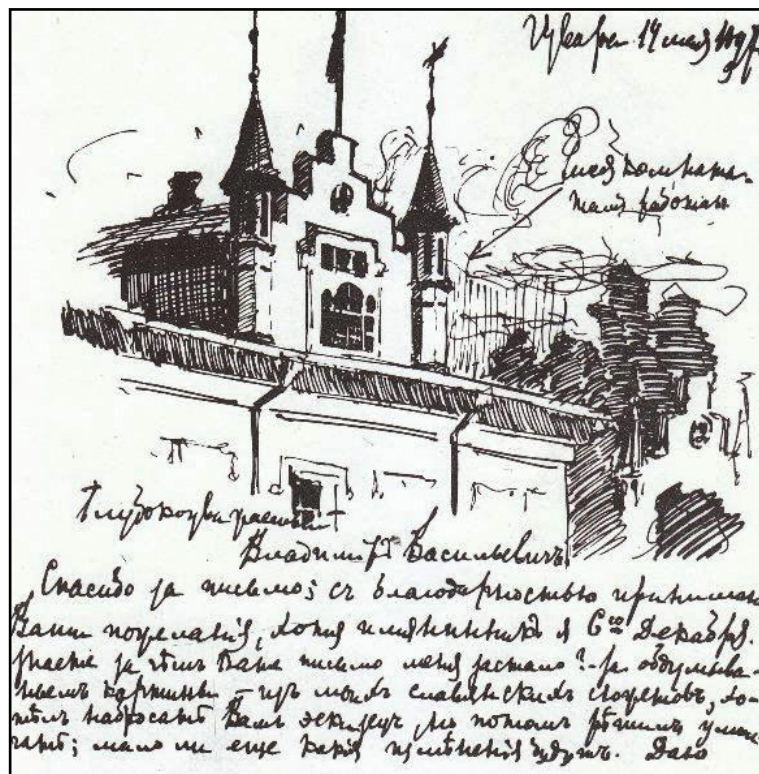 14 мая
моя комната-
тамъ работаю
Глубокоуважаемый
Владимиръ Васильевичъ
Спасибо за письмо; съ благодарностью принимаю
Ваши пожеланія, хотя имянинникъ я 6го Декабря.
Знаете за чѣмъ Ваше письмо меня застало? - За обдумыва-
ньемъ картины - изъ моихъ славянскихъ сюжетовъ, хо-
тѣлъ набросать Вамъ эскизецъ, но потомъ рѣшилъ умол-
чать; мало ли еще какія измѣненія будутъ.